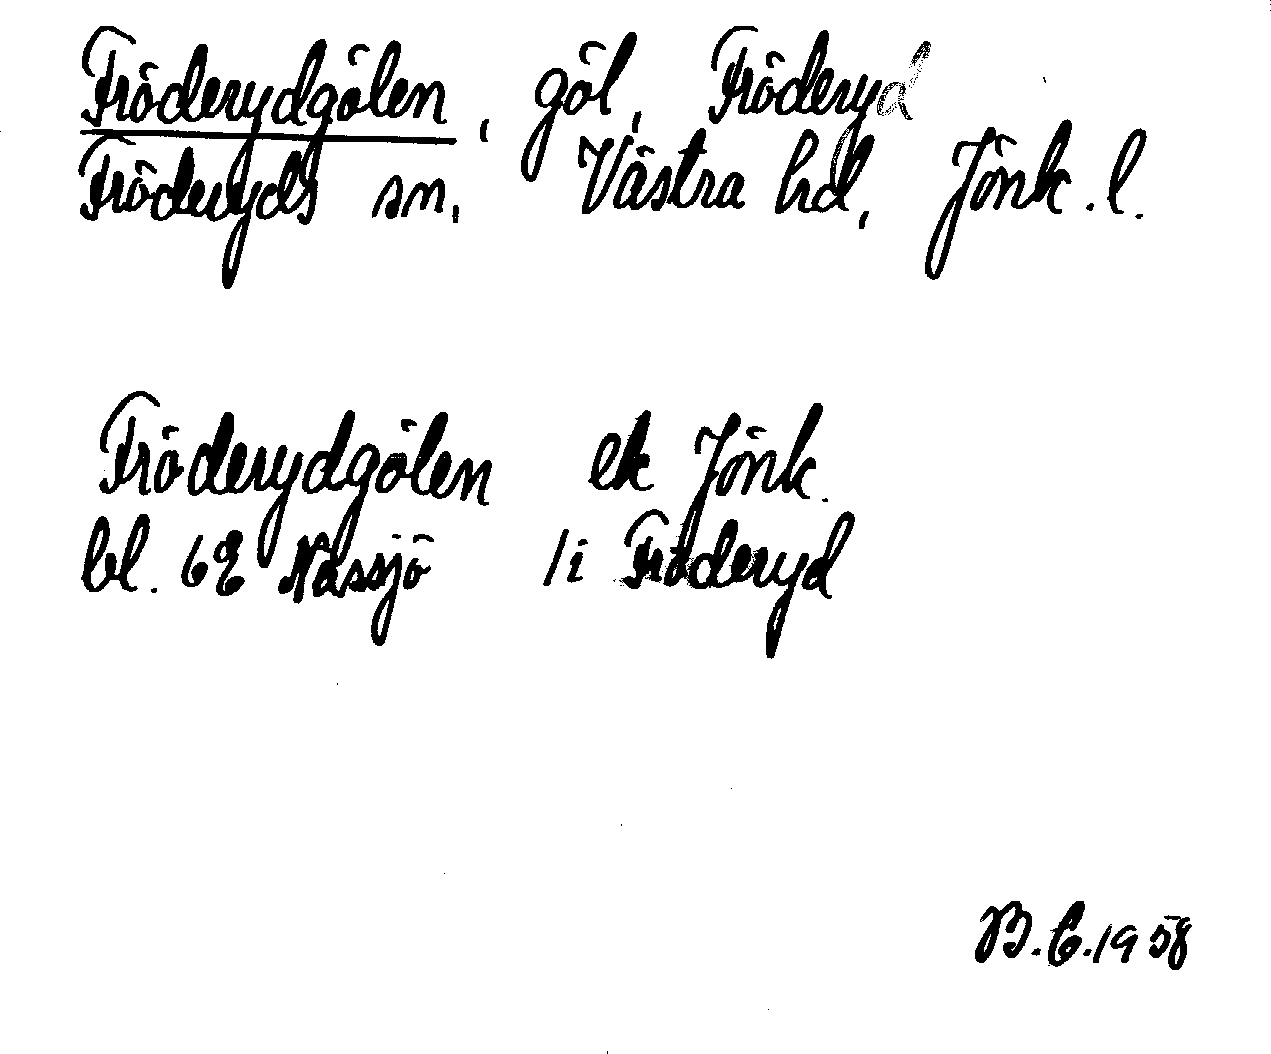 Fröderydgölen, göl, Fröderyd
Fröderyds sn, Västra hd, Jönk. l.
Fröderydgölen ek Jönk.
bl. 6E Nässjö /i Fröderyd
B.E.1958